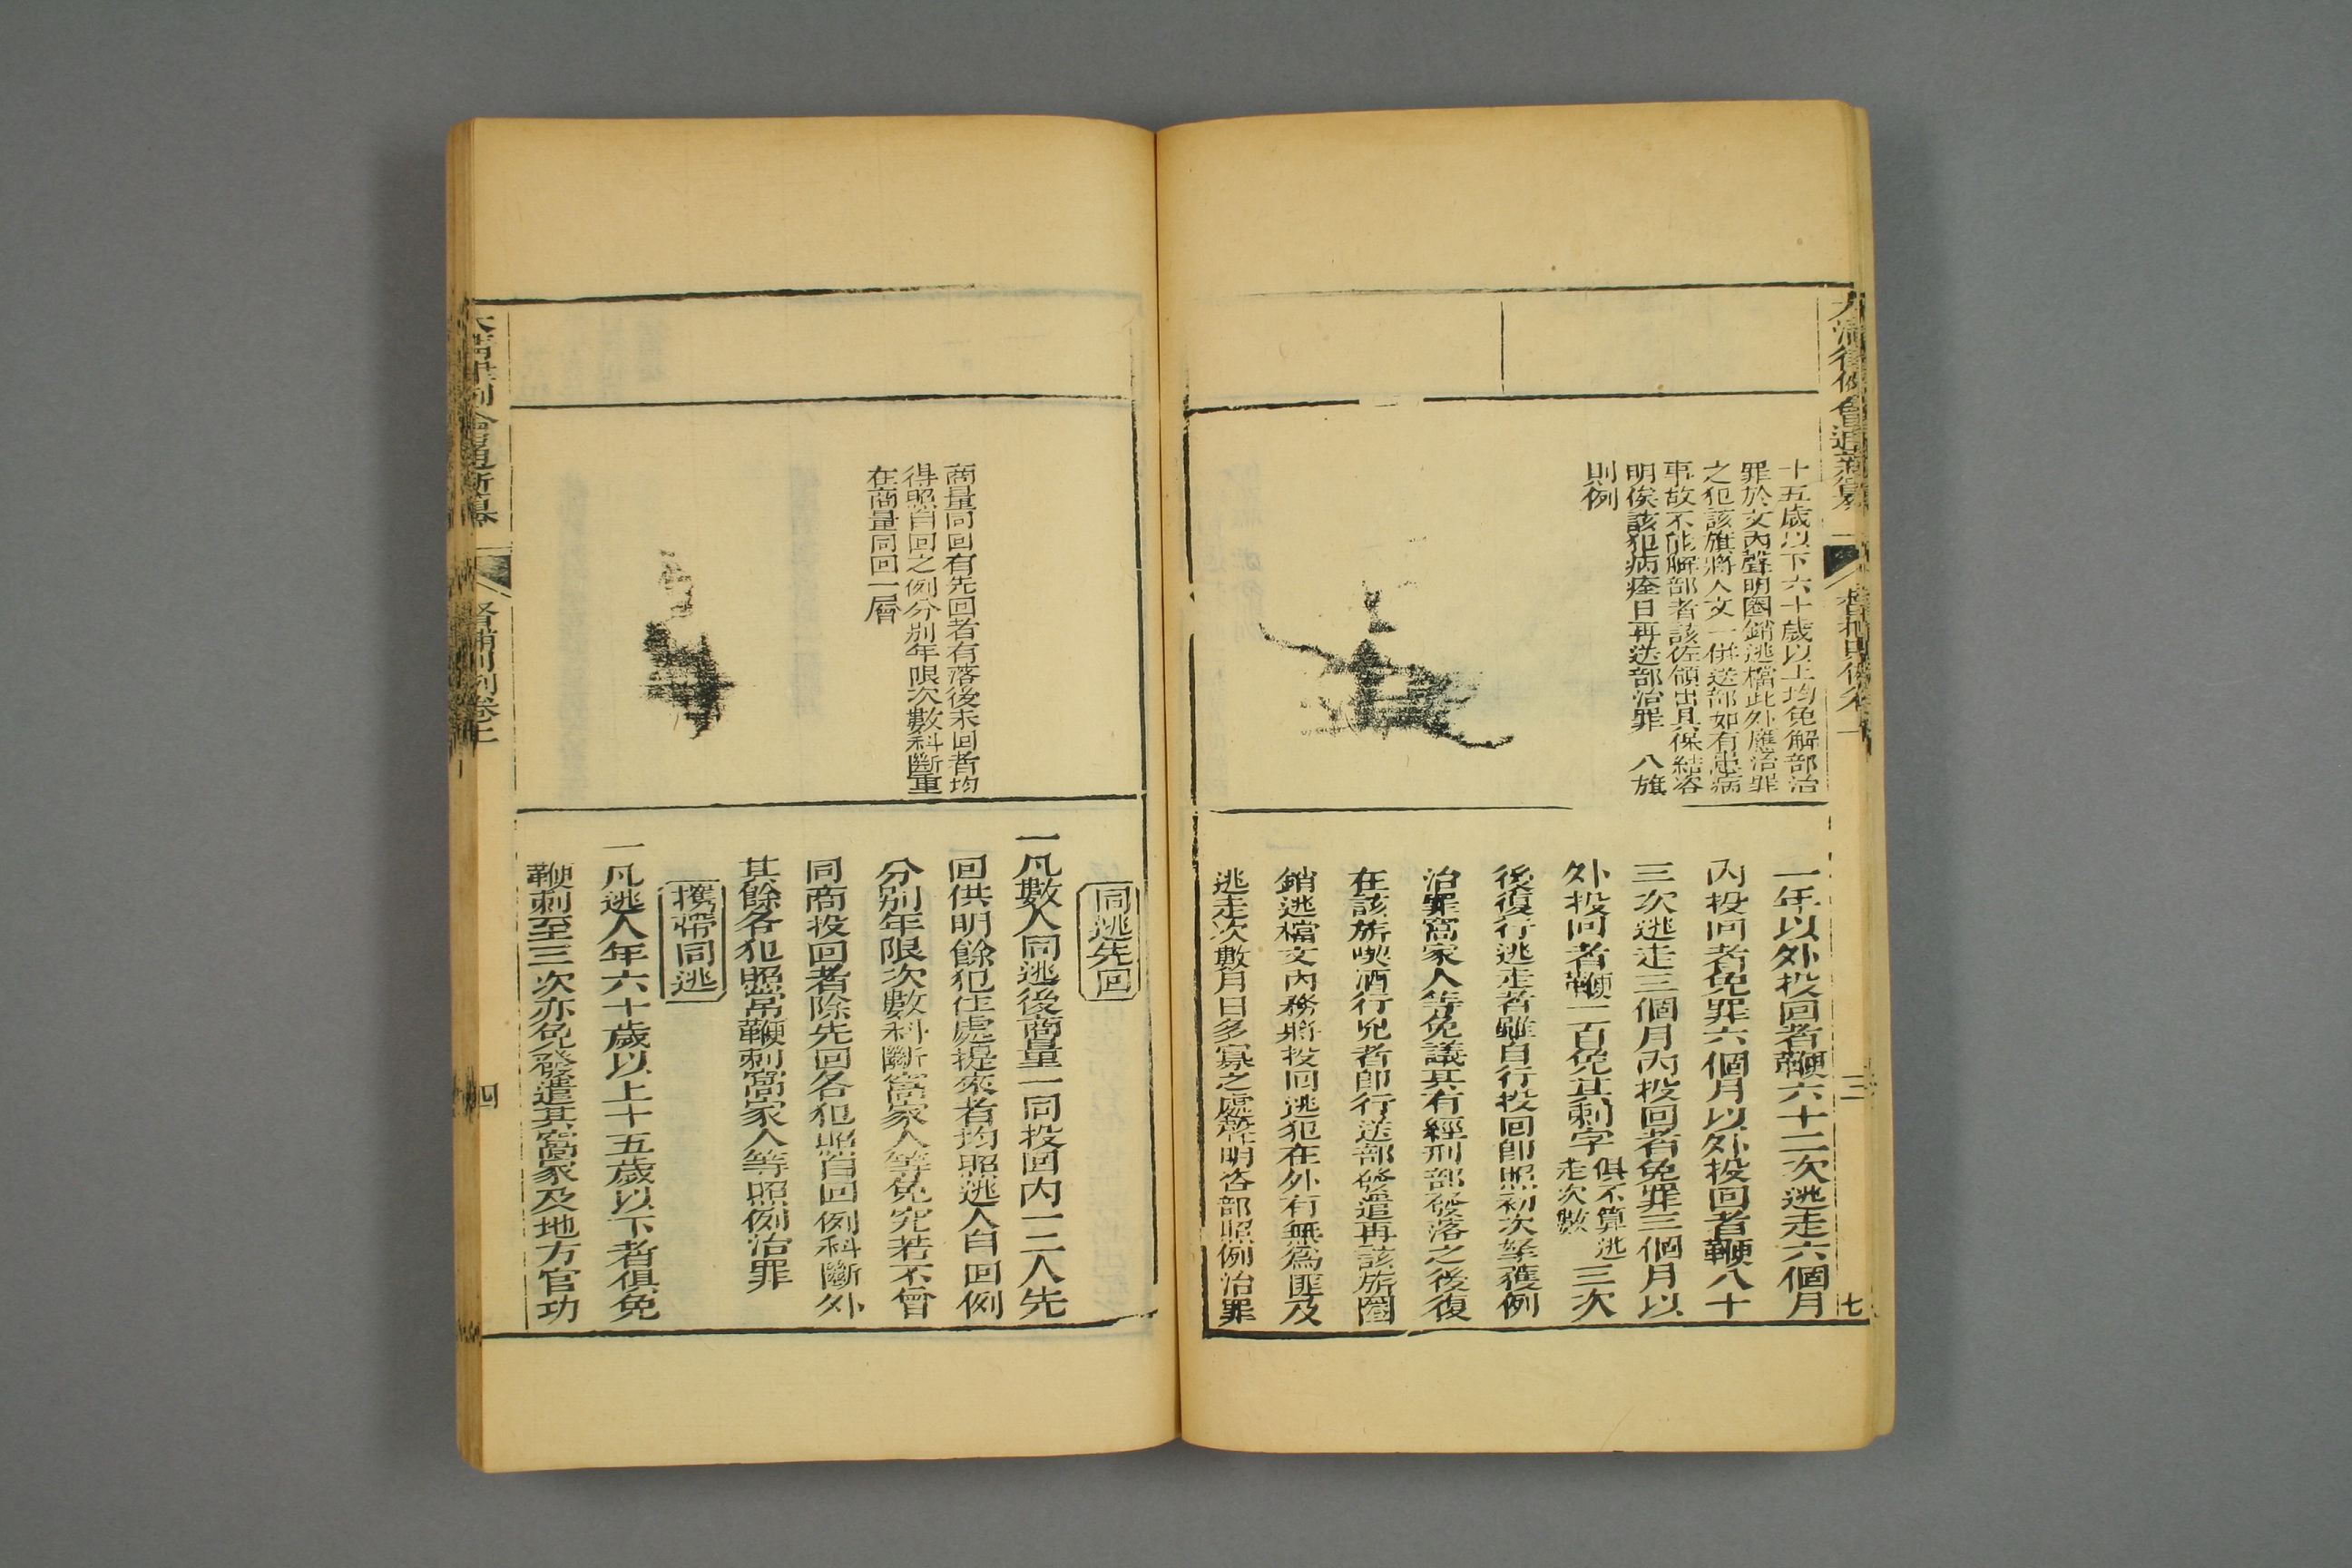 大清律例會通新纂
督捕則例卷上
三
七
十五歲以下六十歲以上均免解部治
罪於文內聲明圈銷逃檔此外應治罪
之犯該旗將人文一併送部如有患病
事故不能解部者該佐領出具保結咨
明俟該犯病痊日再送部治罪 八旗
則例
一年以外投回者鞭六十二次逃走六個月
內投回者免罪六個月以外投回者鞭八十
三次逃走三個月內投回者免罪三個月以
外投回者鞭一百免其刺字俱不算逃走次數三次
後復行逃走者雖自行投回卽照初次拏獲例
治罪窩家人等免議其有經刑部發落之後復
在該旂喫酒行兇者卽行送部發遣再該旂圈
銷逃檔文內務將投回逃犯在外有無爲匪及
逃走次數月日多寡之處聲明咨部照例治罪
商量同回有先回者有落後未回者均
得照自回之例分別年限次數科斷重
在商量同回一層
同逃先回
一凡數人同逃後商量一同投回內一二人先
回供明餘犯住處提來者均照逃人自回例
分別年限次數科斷窩家人等免究若不曾
同商投回者除先回各犯照自回例科斷外
其餘各犯照常鞭刺窩家人等照例治罪
攜帶同逃
一凡逃人年六十歲以上十五歲以下者俱免
鞭刺至三次亦免發遣其窩家及地方官功
大清律例會通新纂
督捕則例卷上
四